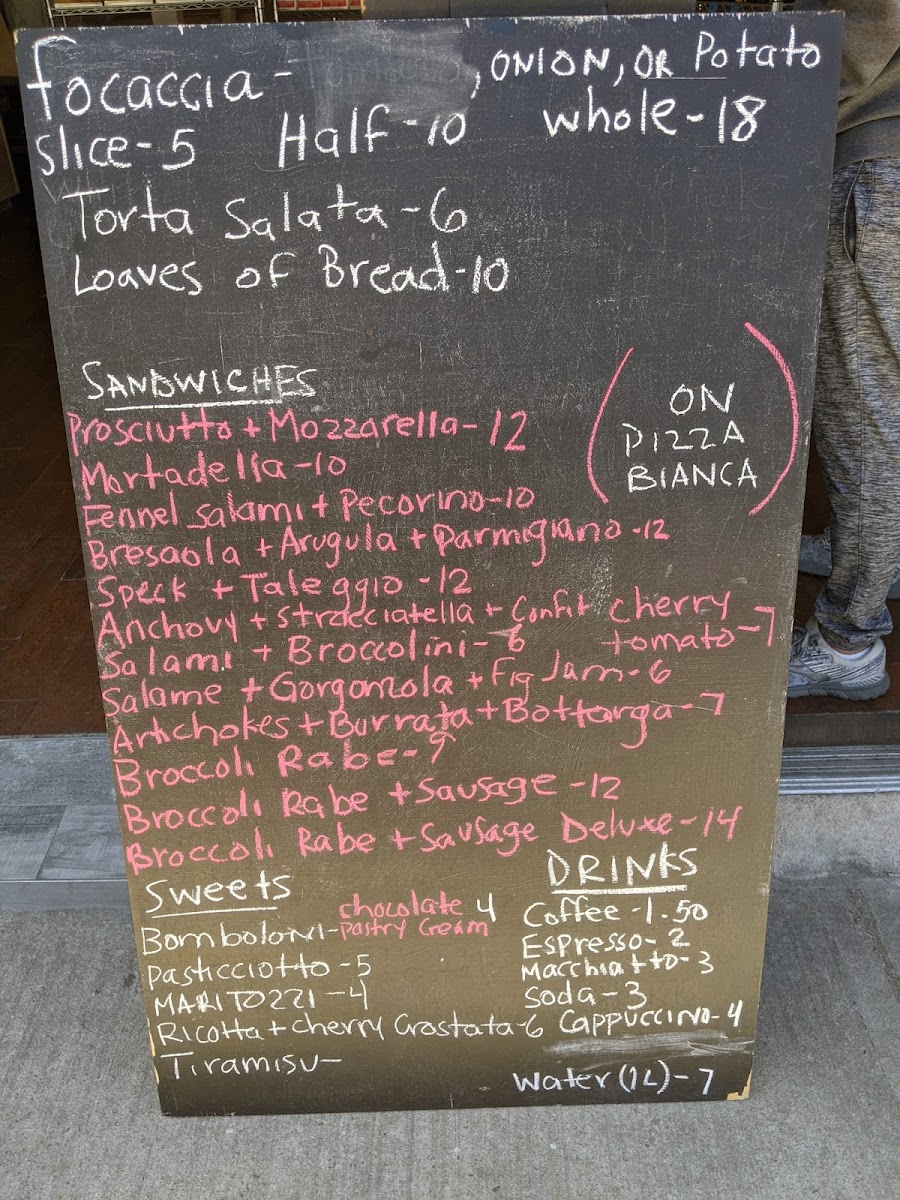 focaccia - , ONION, OR Potato
slice - 5 Half - 10 whole - 18
Torta Salata - 6
Loaves of Bread - 10
SANDWICHES
(ON
PIZZA
BIANCA)
Prosciutto + Mozzarella - 12
Mortadella - 10
Fennel salami + Pecorino - 10
Bresaola + Arugula + Parmigiano - 12
Speck + Taleggio - 12
Anchovy + stracciatella + Confit cherry
tomato - 7
Salami + Broccolini - 6
Salame + Gorgonzola + Fig Jam - 6
Artichokes + Burrata + Bottarga - 7
Broccoli Rabe - 9
Broccoli Rabe + Sausage - 12
Broccoli Rabe + Sausage Deluxe - 14
Sweets
Bomboloni - chocolate 4
pastry Cream
Pasticciotto - 5
MARITOZZI - 4
Ricotta + cherry Crostata - 6
Tiramisu -
DRINKS
Coffee - 1.50
Espresso - 2
Macchiatto - 3
Soda - 3
Cappuccino - 4
Water (1L) - 7